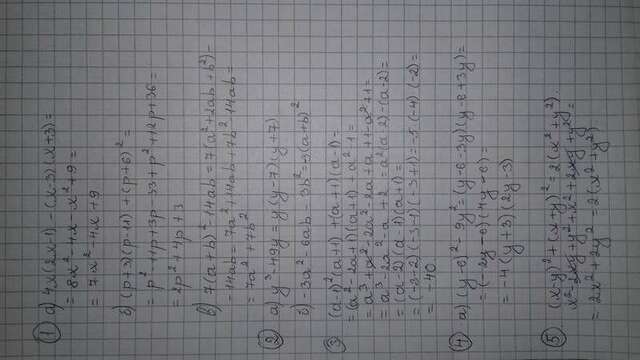 ① а) 4x(2x-1) - (x-3)(x+3)=
= 8x² - 4x - x² + 9 =
= 7x² - 4x + 9
б) (p+3)(p-11) + (p+6)² =
= p² - 11p + 3p - 33 + p² + 12p + 36 =
= 2p² + 4p + 3
в) 7(a+b)² - 14ab = 7(a² + 2ab + b²) -
- 14ab = 7a² + 14ab + 7b² - 14ab =
= 7a² + 7b²
② а) y³ - 49y = y(y-7)(y+7)
б) -3a² - 6ab - 3b² = -3(a+b)²
③ (a-1)²(a+1) + (a+1)(a-1) =
= (a² - 2a + 1)(a+1) + a² - 1 =
= a³ + a² - 2a² - 2a + a + 1 - a² + 1 =
= a³ - 2a² - a + 2 = a²(a-2) - (a-2) =
= (a-2)(a-1)(a+1) =
= (-3-2)(-3-1)(-3+1) = -5·(-4)·(-2) =
= -40
④ а) (y-6)² - 9y² = (y-6-3y)(y-6+3y) =
= (-2y-6)(4y-6) =
= -4(y+3)(2y-3)
⑤ (x-y)² + (x+y)² = 2(x² + y²)
x² - 2xy + y² + x² + 2xy + y² =
= 2x² + 2y² = 2(x² + y²)